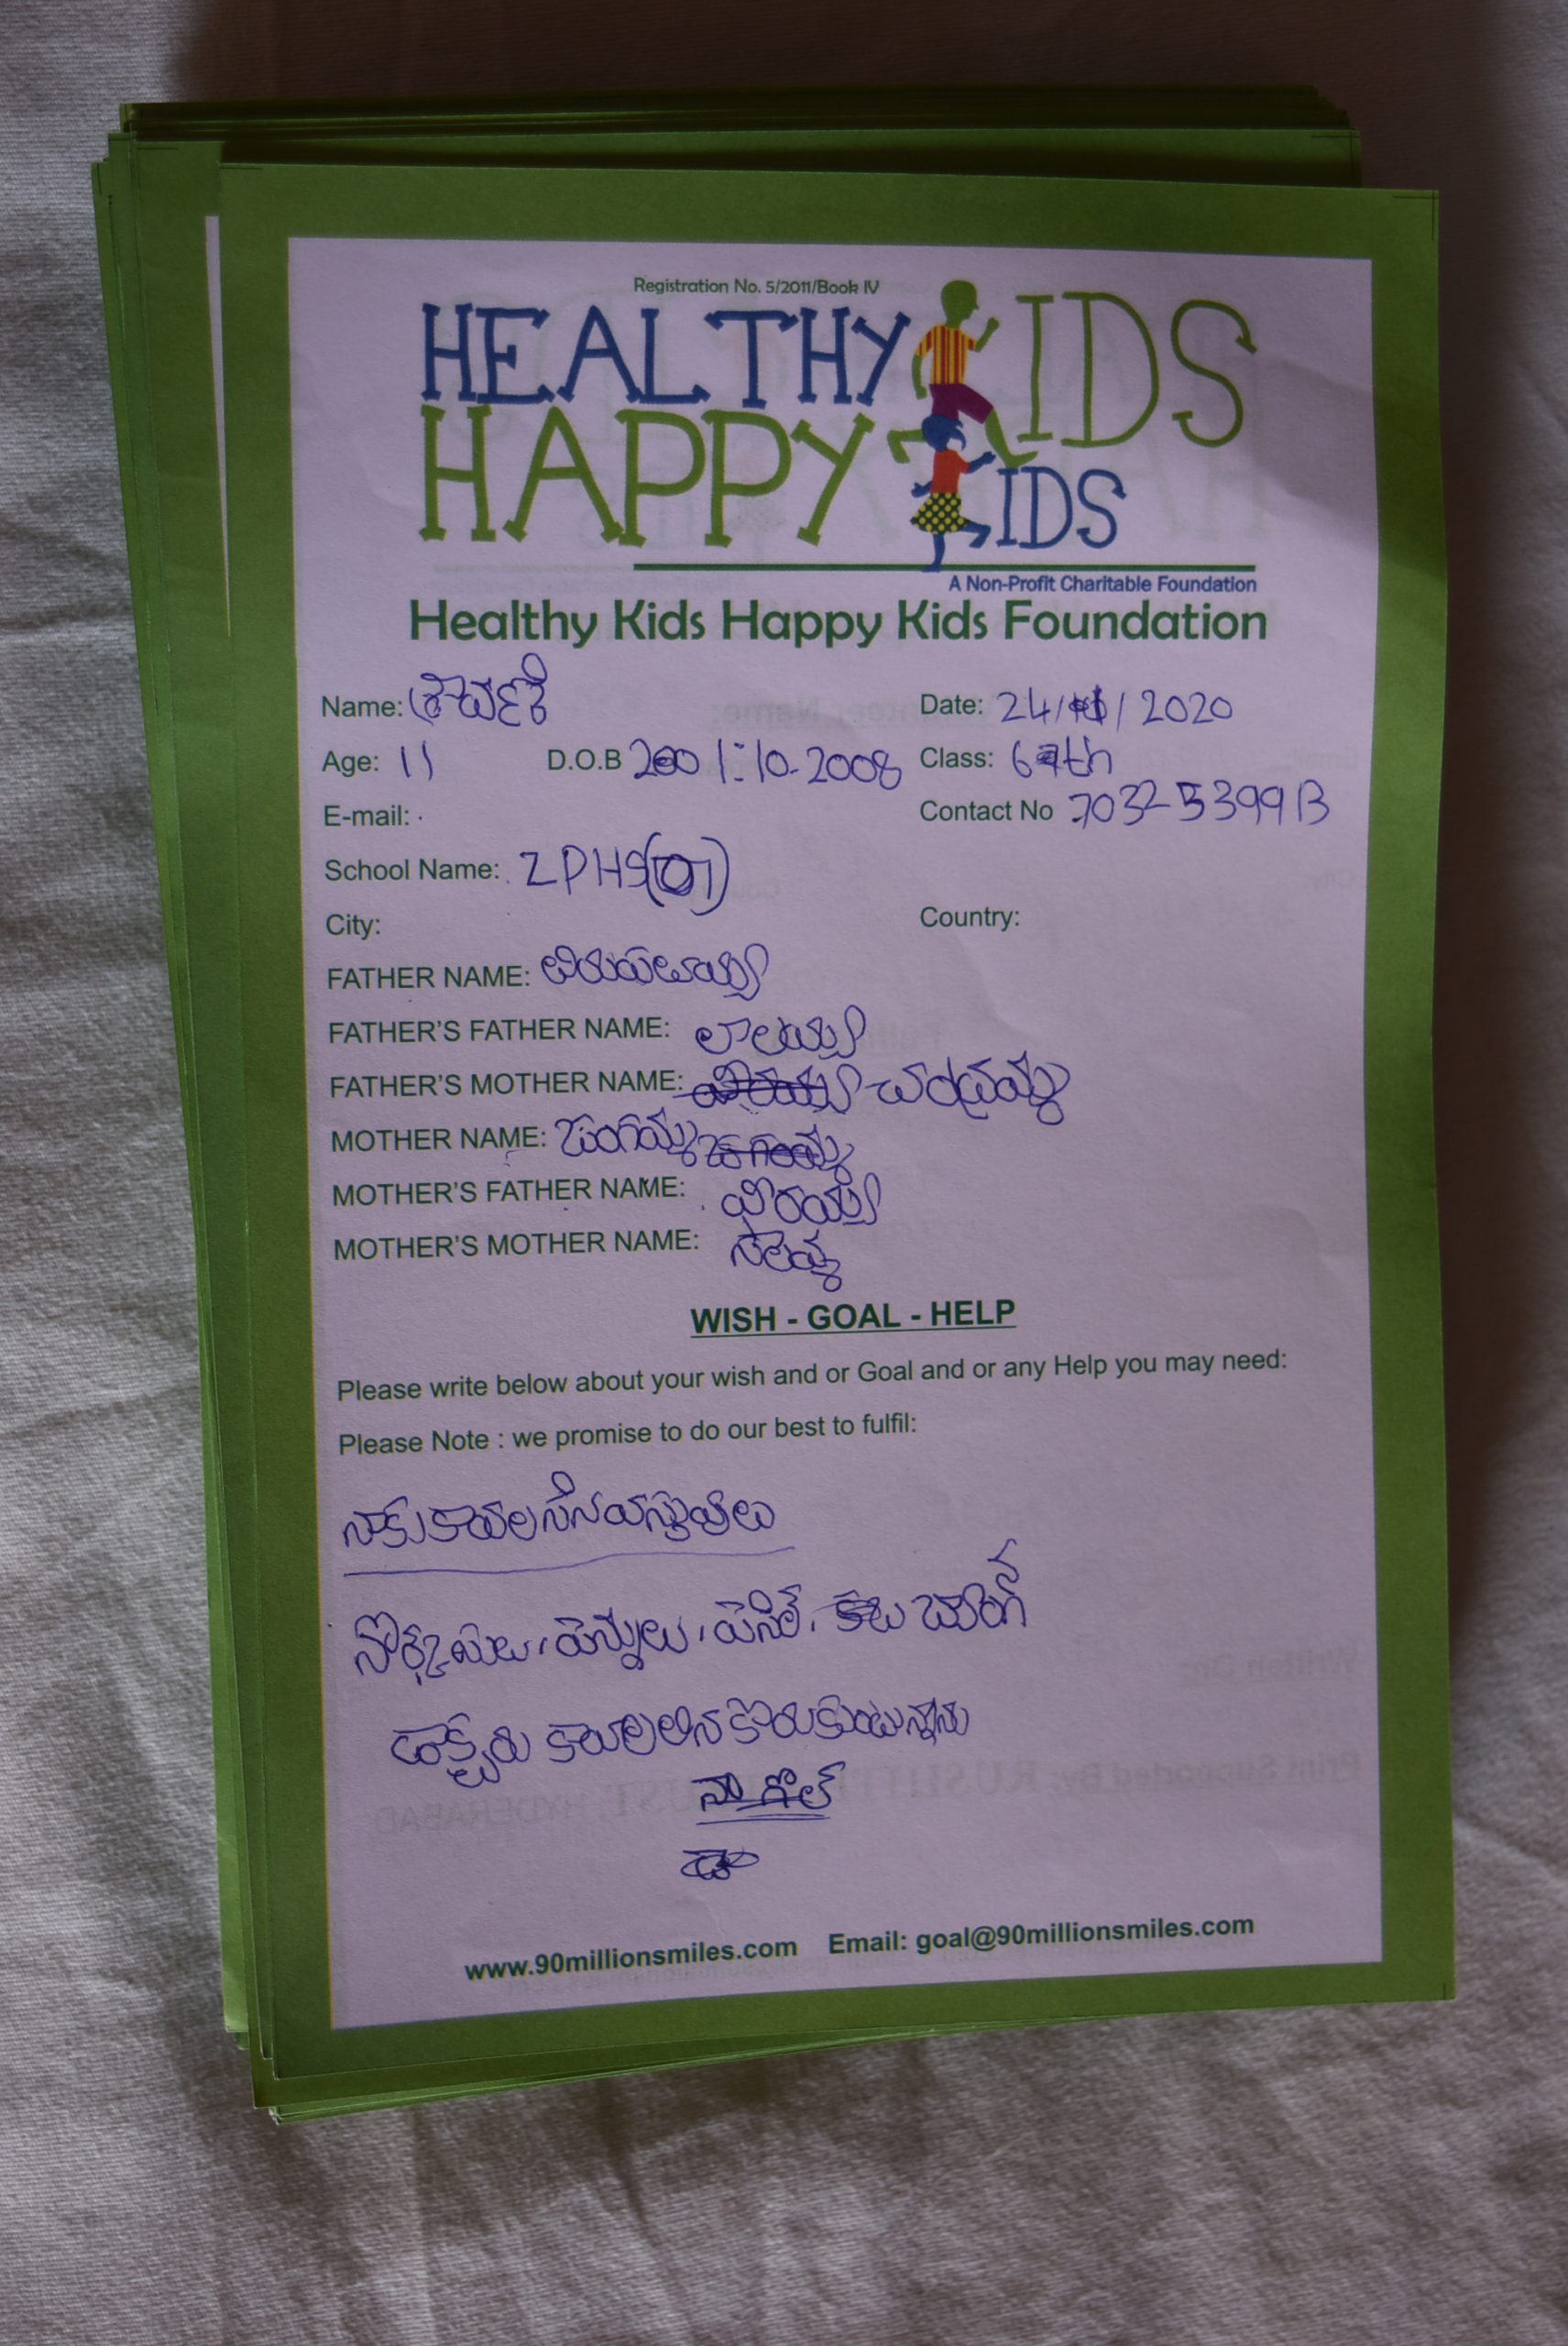 Registration No. 5/2011/Book IV
HEALTHY KIDS
HAPPY KIDS
A Non-Profit Charitable Foundation
Healthy Kids Happy Kids Foundation
Name: శ్రావణి Date: 24/ / 2020
Age: 11 D.O.B 1:10-2008 Class: 6th
E-mail: Contact No
School Name: ZPHS
City: Country:
FATHER NAME:
FATHER'S FATHER NAME: లాలయ్య
FATHER'S MOTHER NAME: చంద్రమ్మ
MOTHER NAME: జంగమ్మ
MOTHER'S FATHER NAME: వీరయ్య
MOTHER'S MOTHER NAME:
WISH - GOAL - HELP
Please write below about your wish and or Goal and or any Help you may need:
Please Note : we promise to do our best to fulfil:
నాకు కావలసిన వస్తువులు
పెన్నులు,
డాక్టరు
నా గోల్
www.90millionsmiles.com Email: goal@90millionsmiles.com